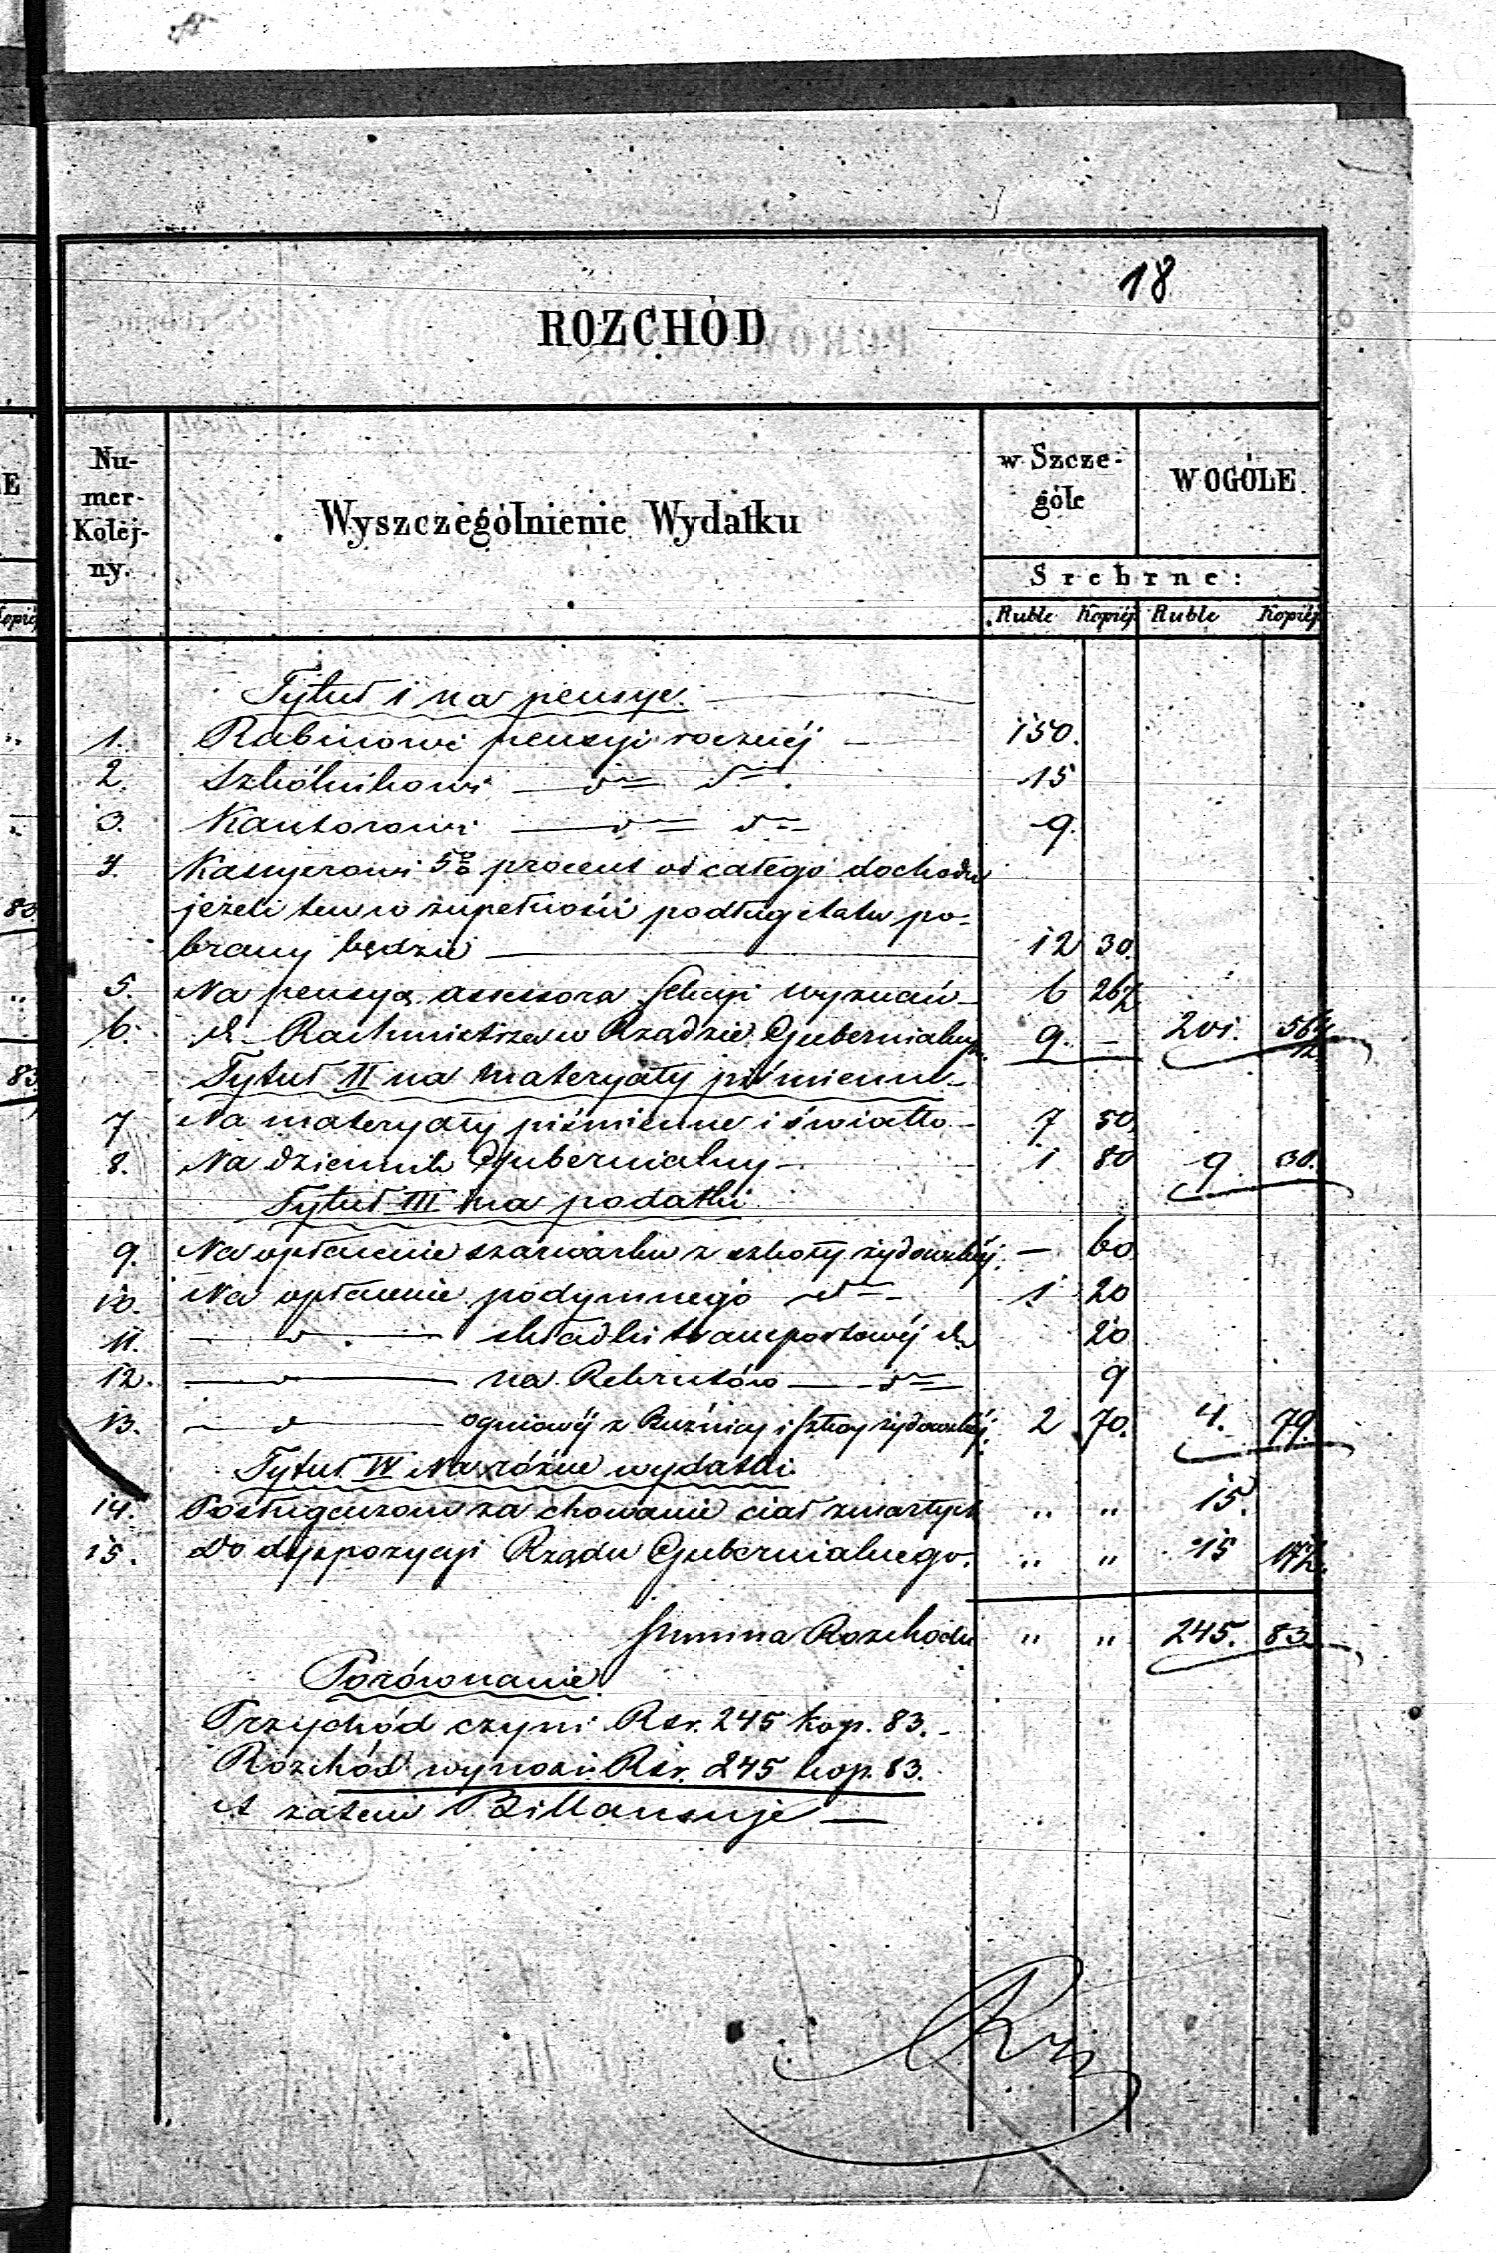 18
ROZCHÓD
Nu-
mer
Kolej-
ny.
Wyszczególnienie Wydatku
w Szcze-
góle
W OGÓLE
Srebrne:
Ruble Kopiéj Ruble Kopiéj
Tytuł I na pensye.
1. Rabinowi pensyi roczniéj — 150.
2. Szkólnikowi — d° d° 15
3. Kantorowi — d° d° 9.
4. Kassyerowi 5% procent od całego dochodu
jeżeli ten w zupełności podług etatu po-
brany będzie — 12 30.
5. Na pensyą assessora Sekcyi wyznań — 6 26½
6. d° Rachmistrza w Rządzie Gubernialnym 9. — 201. 56½
Tytuł II na materyały piśmienne
7 Na materyały piśmienne i światło — 7 50
8. Na dziennik Gubernialny — 1 80 9 30.
Tytuł III na podatki
9. Na opłacenie szarwarku z szkoły żydowskiéj. — 60
10. Na opłacenie podymnego d° — 1 20
11. — d° — składki transportowéj d° 20
12. — d° — na Rekrutów — d° 9
13. — d° — ogniowéj z Buźnicy i Szkoy żydowskiéj. 2 70. 4. 79.
Tytuł IV Na różne wydatki
14. Posługaczom za chowanie ciał zmarłych " " 15.
15. Do dyspozycyi Rządu Gubernialnego. " " 15 17½.
Summa Rozchodu " " 245. 83
Porównanie.
Przychód czyni Rsr. 245 kop. 83.
Rozchód wynosi Rsr. 245 kop. 83.
A zatem Billansuje —